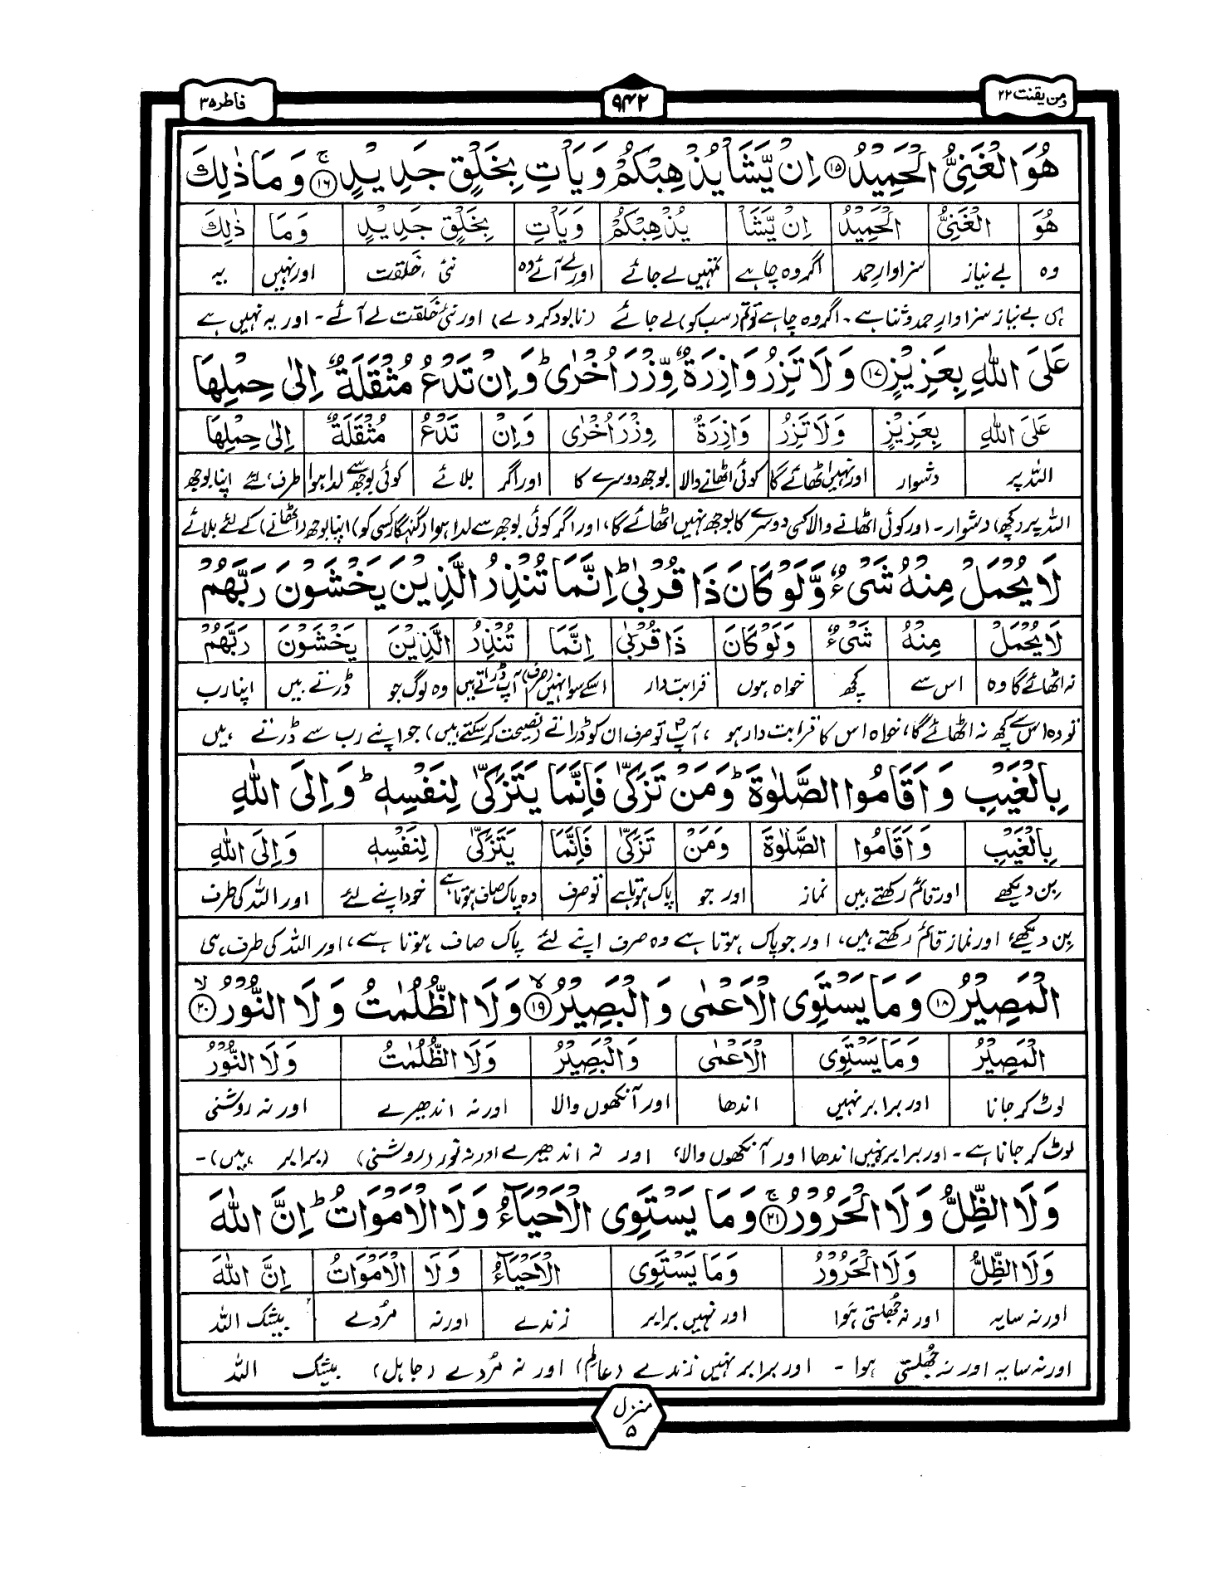 ومن یقنت ۲۲
۹۴۲
فاطر ۳۵
هُوَ الْغَنِیُّ الْحَمِیْدُ ﴿۱۵﴾ اِنْ یَّشَاْ یُذْهِبْكُمْ وَ یَاْتِ بِخَلْقٍ جَدِیْدٍ ﴿۱۶﴾ۚ وَ مَا ذٰلِكَ
هُوَ | الْغَنِیُّ | الْحَمِیْدُ | اِنْ یَّشَاْ | یُذْهِبْكُمْ | وَیَاْتِ | بِخَلْقٍ جَدِیْدٍ | وَمَا | ذٰلِكَ
وہ | بے نیاز | سزاوارِ حمد | اگر وہ چاہے | تمہیں لے جائے | اور لے آئے وہ | نئی خلقت | اور نہیں | یہ
ہی بے نیاز سزاوارِ حمد و ثنا ہے۔ اگر وہ چاہے تو تم (سب کو) لے جائے (نابود کر دے) اور نئی خلقت لے آئے۔ اور یہ نہیں ہے
عَلَی اللّٰهِ بِعَزِیْزٍ ﴿۱۷﴾ وَ لَا تَزِرُ وَازِرَةٌ وِّزْرَ اُخْرٰی ؕ وَ اِنْ تَدْعُ مُثْقَلَةٌ اِلٰی حِمْلِهَا
عَلَی اللّٰهِ | بِعَزِیْزٍ | وَلَا تَزِرُ | وَازِرَةٌ | وِزْرَ اُخْرٰی | وَاِنْ | تَدْعُ | مُثْقَلَةٌ | اِلٰی حِمْلِهَا
اللہ پر | دشوار | اور نہیں اٹھائے گا | کوئی اٹھانے والا | بوجھ دوسرے کا | اور اگر | بلائے | کوئی بوجھ سے لدا ہوا | طرف، لئے اپنا بوجھ
اللہ پر (کچھ) دشوار۔ اور کوئی اٹھانے والا کسی دوسرے کا بوجھ نہیں اٹھائے گا، اور اگر کوئی بوجھ سے لدا ہوا (گنہگار کسی کو) اپنا بوجھ (اٹھانے) کے لئے بلائے
لَا یُحْمَلْ مِنْهُ شَیْءٌ وَّ لَوْ كَانَ ذَا قُرْبٰی ؕ اِنَّمَا تُنْذِرُ الَّذِیْنَ یَخْشَوْنَ رَبَّهُمْ
لَا یُحْمَلْ | مِنْهُ | شَیْءٌ | وَلَوْ كَانَ | ذَا قُرْبٰی | اِنَّمَا | تُنْذِرُ | الَّذِیْنَ | یَخْشَوْنَ | رَبَّهُمْ
نہ اٹھائے گا وہ | اس سے | کچھ | خواہ ہوں | قرابت دار | اسکے سوا نہیں (صرف) | آپ ڈراتے ہیں | وہ لوگ جو | ڈرتے ہیں | اپنا رب
تو وہ اس سے کچھ نہ اٹھائے گا، خواہ اس کا قرابت دار ہو، آپؐ تو صرف ان کو ڈراتے (نصیحت کر سکتے ہیں) جو اپنے رب سے ڈرتے ہیں
بِالْغَیْبِ وَ اَقَامُوا الصَّلٰوةَ ؕ وَ مَنْ تَزَكّٰی فَاِنَّمَا یَتَزَكّٰی لِنَفْسِهٖ ؕ وَ اِلَی اللّٰهِ
بِالْغَیْبِ | وَاَقَامُوا | الصَّلٰوةَ | وَمَنْ | تَزَكّٰی | فَاِنَّمَا | یَتَزَكّٰی | لِنَفْسِهٖ | وَاِلَی اللّٰهِ
بن دیکھے | اور قائم رکھتے ہیں | نماز | اور جو | پاک ہوتا ہے | تو صرف | وہ پاک صاف ہوتا ہے | خود اپنے لئے | اور اللہ کی طرف
بن دیکھے اور نماز قائم رکھتے ہیں، اور جو پاک ہوتا ہے وہ صرف اپنے لئے پاک صاف ہوتا ہے، اور اللہ کی طرف ہی
الْمَصِیْرُ ﴿۱۸﴾ وَ مَا یَسْتَوِی الْاَعْمٰی وَ الْبَصِیْرُ ﴿۱۹﴾ۙ وَ لَا الظُّلُمٰتُ وَ لَا النُّوْرُ ﴿۲۰﴾ۙ
الْمَصِیْرُ | وَمَا یَسْتَوِی | الْاَعْمٰی | وَالْبَصِیْرُ | وَلَا الظُّلُمٰتُ | وَلَا النُّوْرُ
لوٹ کر جانا | اور برابر نہیں | اندھا | اور آنکھوں والا | اور نہ اندھیرے | اور نہ روشنی
لوٹ کر جانا ہے۔ اور برابر نہیں اندھا اور آنکھوں والا، اور نہ اندھیرے اور نہ نور (روشنی) (برابر ہیں)۔
وَ لَا الظِّلُّ وَ لَا الْحَرُوْرُ ﴿۲۱﴾ۚ وَ مَا یَسْتَوِی الْاَحْیَآءُ وَ لَا الْاَمْوَاتُ ؕ اِنَّ اللّٰهَ
وَلَا الظِّلُّ | وَلَا الْحَرُوْرُ | وَمَا یَسْتَوِی | الْاَحْیَآءُ | وَلَا | الْاَمْوَاتُ | اِنَّ اللّٰهَ
اور نہ سایہ | اور نہ جُھلستی ہَوا | اور نہیں برابر | زندے | اور نہ | مُردے | بیشک اللہ
اور نہ سایہ اور نہ جُھلستی ہوا - اور برابر نہیں زندے (عالم) اور نہ مُردے (جاہل) بیشک اللہ
منزل ۵